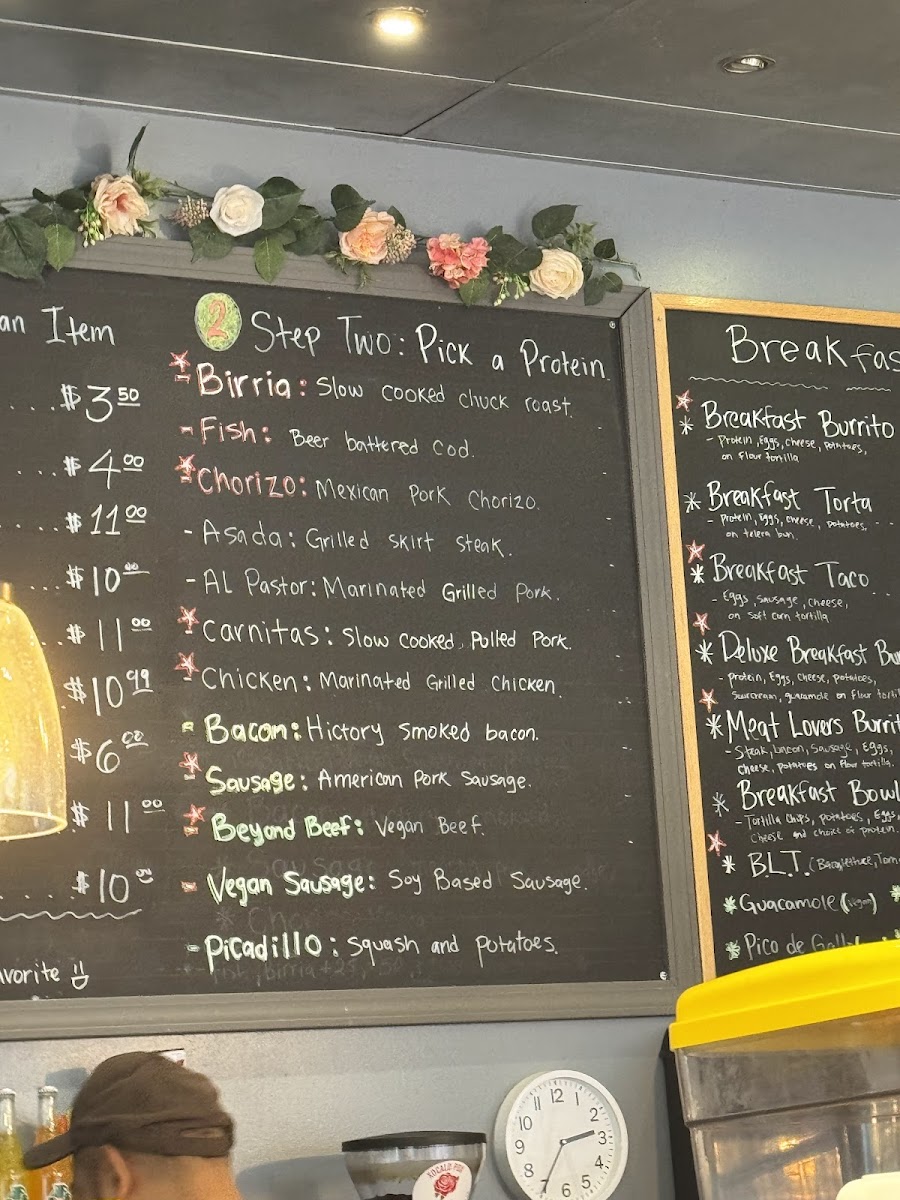 an Item
$3.50
$4.00
$11.00
$10
$11.00
$10.99
$6.00
$11.00
$10
avorite
2 Step Two: Pick a Protein
Birria: Slow cooked chuck roast.
- Fish: Beer battered Cod.
Chorizo: Mexican Pork Chorizo.
- Asada: Grilled Skirt Steak.
- AL Pastor: Marinated Grilled Pork.
Carnitas: Slow cooked, Pulled Pork.
Chicken: Marinated Grilled Chicken.
- Bacon: Hictory Smoked bacon.
Sausage: American Pork Sausage.
- Beyond Beef: Vegan Beef.
- Vegan Sausage: Soy Based Sausage.
- Picadillo: Squash and Potatoes.
Breakfas
* Breakfast Burrito
- Protein, Eggs, cheese, Potatoes,
on flour tortilla
* Breakfast Torta
- Protein, Eggs, cheese, potatoes,
on telera bun.
* Breakfast Taco
- Eggs, Sausage, Cheese,
on Soft Corn tortilla
* Deluxe Breakfast Bu
- protein, Eggs, Cheese, potatoes,
Sourcream, guacamole on flour torti
* Meat Lovers Burrit
- Steak, bacon, Sausage, Eggs,
cheese, potatoes on flour tortilla.
* Breakfast Bowl
- Tortilla Chips, potatoes, Eggs,
Cheese and choice of protein.
* B.L.T. (Bacon, lettuce, Tom
* Guacamole (vegan) *
* Pico de Gall
12
1
2
3
4
5
6
7
8
9
10
11